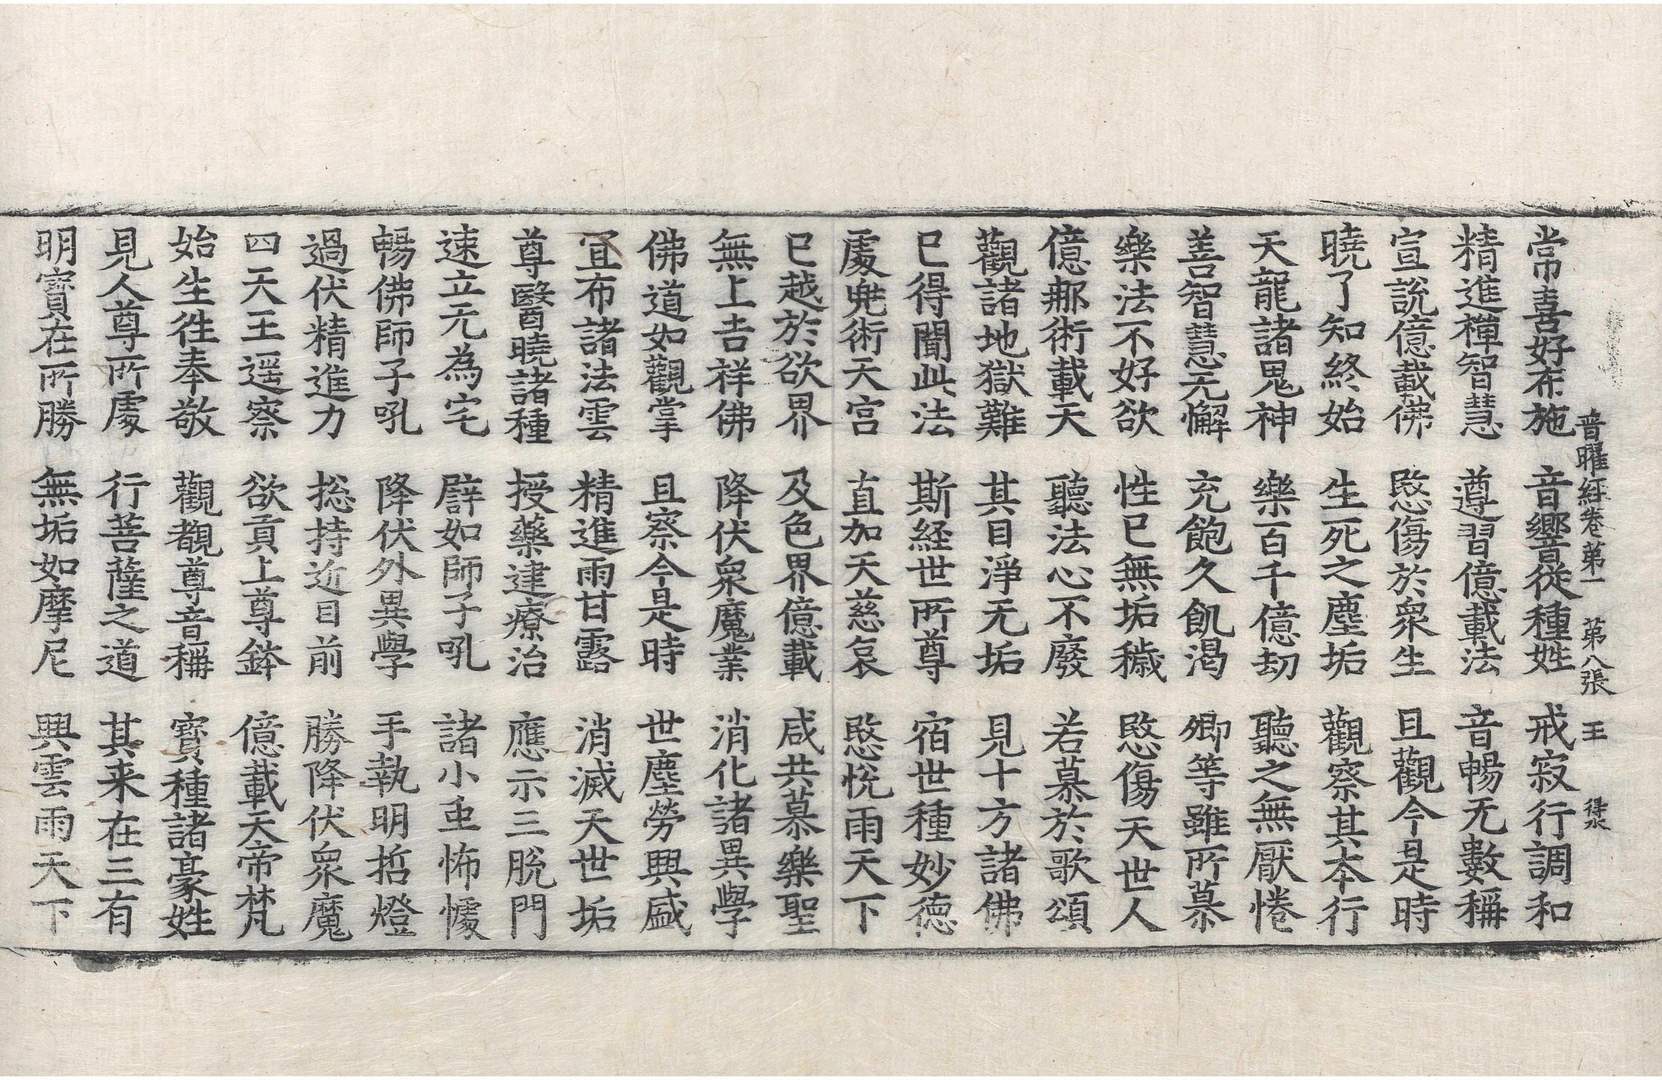 普曜経卷第一 第八張 王 得水
常喜好布施 音響從種姓 戒寂行調和
精進禪智慧 遵習億載法 音暢无數稱
宣說億載佛 愍傷於衆生 且觀今是時
曉了知終始 生死之塵垢 觀察其本行
天龍諸鬼神 樂百千億劫 聽之無厭惓
善智慧无懈 充飽久飢渴 卿等雖所慕
樂法不好欲 性已無垢穢 愍傷天世人
億那術載天 聽法心不廢 若慕於歌頌
觀諸地獄難 其目淨无垢 見十方諸佛
已得聞此法 斯経世所尊 宿世種妙德
處兠術天宫 直加天慈哀 愍悅雨天下
已越於欲界 及色界億載 咸共慕樂聖
無上吉祥佛 降伏衆魔業 消化諸異學
佛道如觀掌 且察今是時 世塵勞興盛
宜布諸法雲 精進雨甘露 消滅天世垢
尊醫曉諸種 授藥建療治 應示三脫門
速立无為宅 譬如師子吼 諸小虫怖懅
暢佛師子吼 降伏外異學 手執明哲燈
過伏精進力 捴持近目前 勝降伏衆魔
四天王遥察 欲貢上尊鉢 億載天帝梵
始生徃奉敬 觀覩尊音稱 寶種諸豪姓
見人尊所處 行菩薩之道 其来在三有
明寶在所勝 無垢如摩尼 興雲雨天下